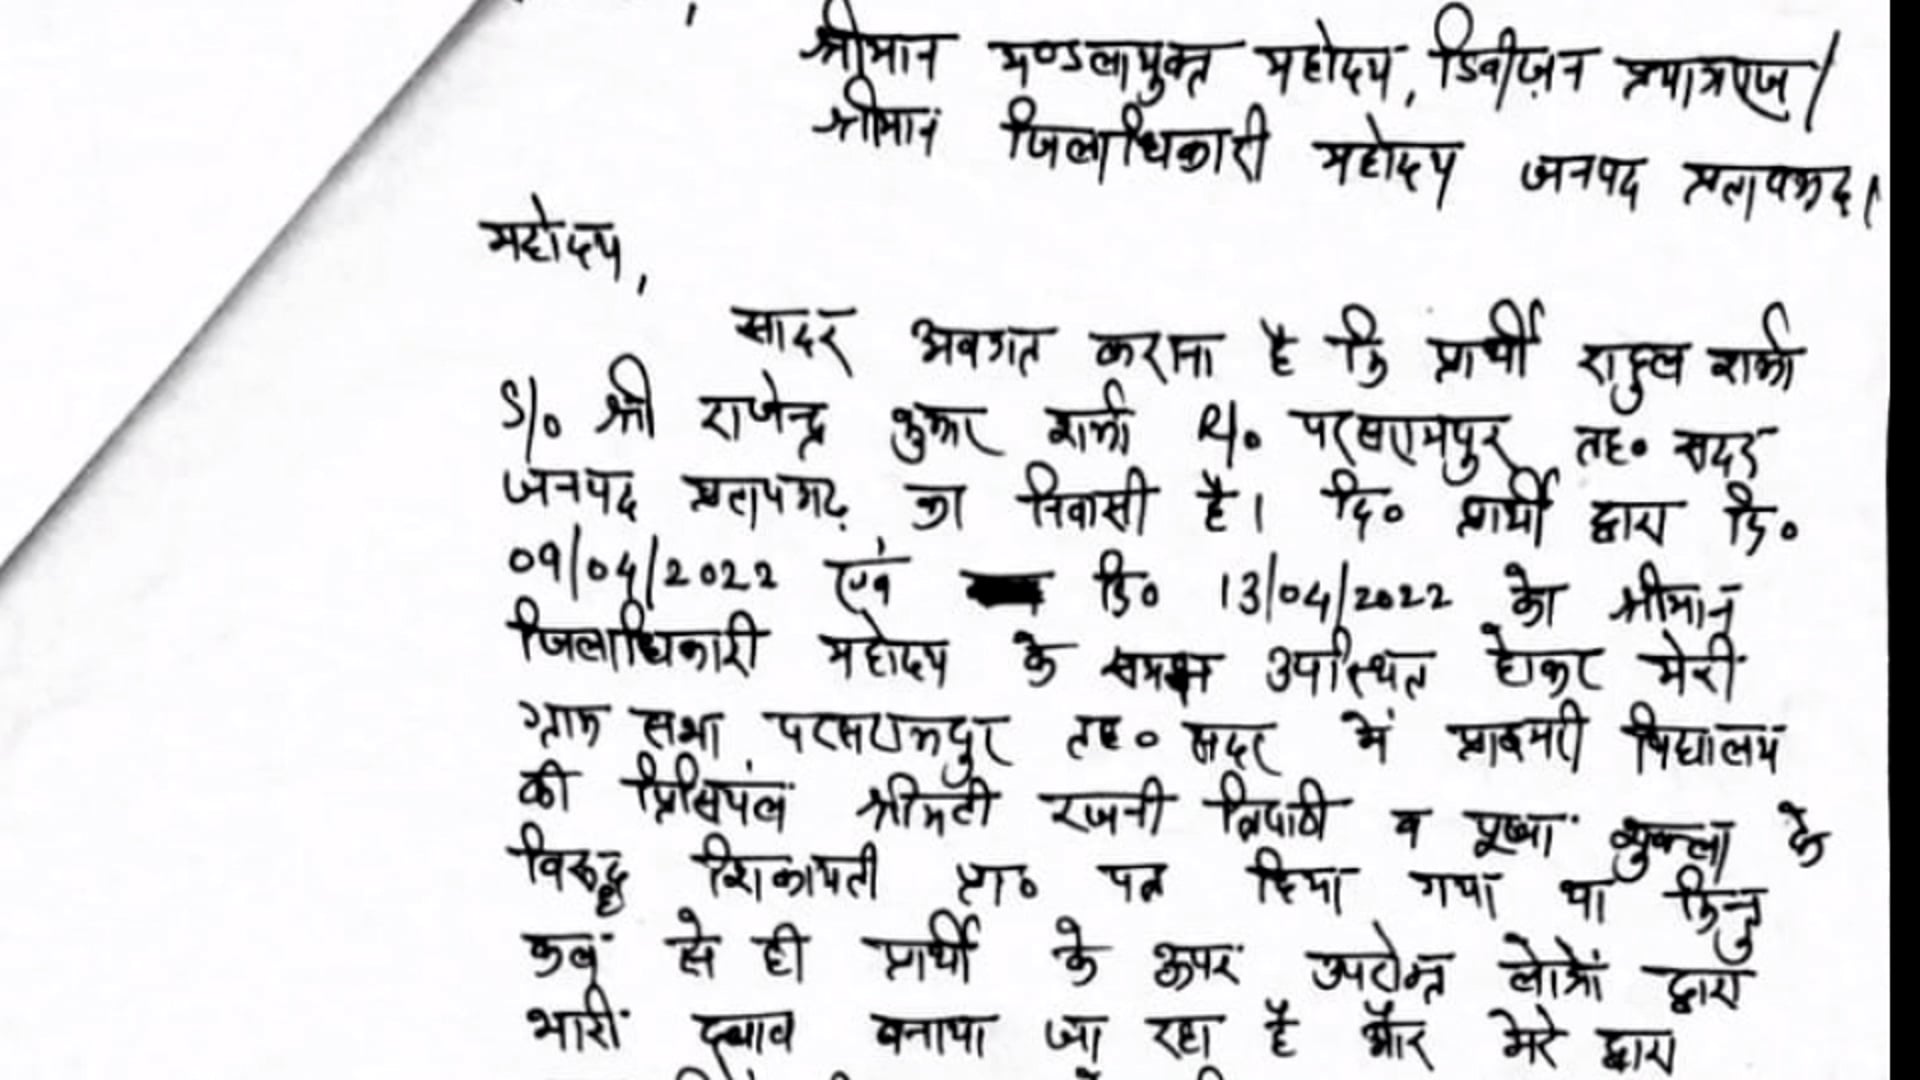 श्रीमान मण्डलायुक्त महोदय, डिवीज़न प्रयागराज।
श्रीमान जिलाधिकारी महोदय जनपद प्रतापगढ़।
महोदय,
सादर अवगत कराना है कि प्रार्थी राहुल शर्मा
S/o श्री राजेन्द्र कुमार शर्मा R/o परसरामपुर तह० सदर
जनपद प्रतापगढ़ का निवासी है। दि० प्रार्थी द्वारा दि०
09/04/2022 एवं दि० 13/04/2022 को श्रीमान
जिलाधिकारी महोदय के समक्ष उपस्थित होकर मेरी
ग्राम सभा परसरामपुर तह० सदर में प्राइमरी विद्यालय
की प्रिंसिपल श्रीमती रजनी त्रिपाठी व पुष्पा शुक्ला के
विरुद्ध शिकायती प्रा० पत्र दिया गया था किन्तु
कल से ही प्रार्थी के ऊपर उपरोक्त लोगों द्वारा
भारी दबाव बनाया जा रहा है और मेरे द्वारा